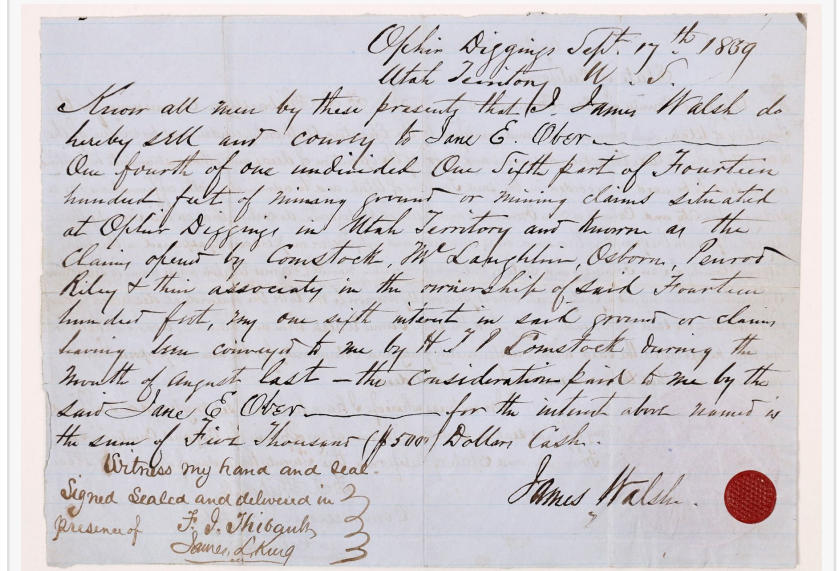 Ophir Diggings Sept. 17th 1859
Utah Territory U. S.
Know all men by these presents that I, James Walsh do
hereby sell and convey to Jane E. Ober
One fourth of one undivided One Sixth part of Fourteen
hundred feet of mining ground or mining claims situated
at Ophir Diggings in Utah Territory and known as the
Claims opened by Comstock, McLaughlin, Osborn, Penrod
Riley & their associates in the ownership of said Fourteen
hundred feet, my one sixth interest in said ground or claims
having been conveyed to me by H. T. P Comstock during the
month of August last — the consideration paid to me by the
said Jane E Ober for the interest above named is
the sum of Five Thousand ($5000) Dollars Cash.
Witness my hand and seal.
Signed Sealed and delivered in
presence of F. J. Thibault
James L King
James Walsh